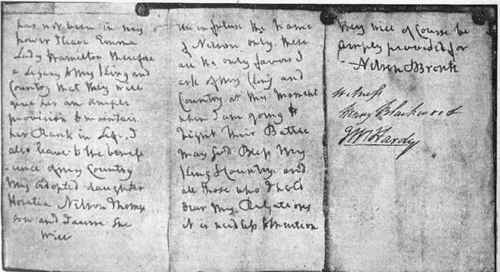 has not been in my
power I leave Emma
Lady Hamilton therefore
a Legacy to my King and
Country that they will
give her an ample
provision to maintain
her Rank in Life. I
also leave to the benefi
cence of my Country
my adopted daughter
Horatia Nelson Thomp
son and I desire She
will
Use in future the Name
of Nelson only, these
are the only favors I
ask of my King and
Country at this moment
when I am going to
fight their Battle
May God Bless My
King & Country and
all those who I hold
dear My Relations
it is needless to mention
they will of Course be
amply provided for
Nelson Bronte
Witness
Henry Blackwood
TM Hardy